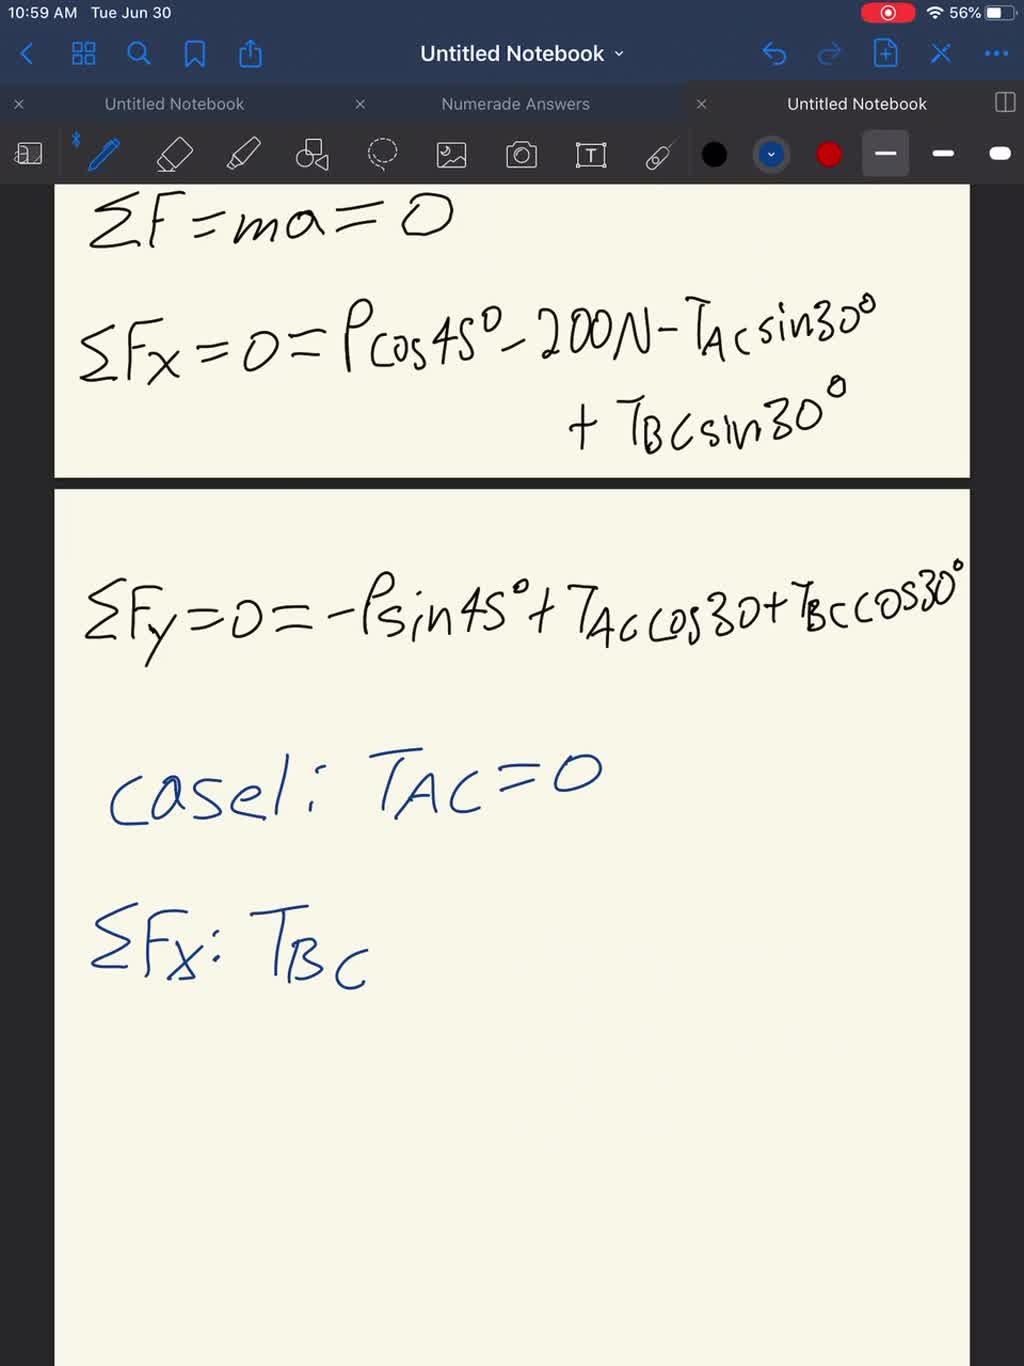 10:59 AM Tue Jun 30 56%
Untitled Notebook
Untitled Notebook Numerade Answers Untitled Notebook
ΣF = ma = 0
ΣFx = 0 = Pcos45° - 200N - TAC sin30°
+ TBC sin30°
ΣFy = 0 = -Psin45° + TAC cos30 + TBC cos30°
case1: TAC = 0
ΣFx: TBC